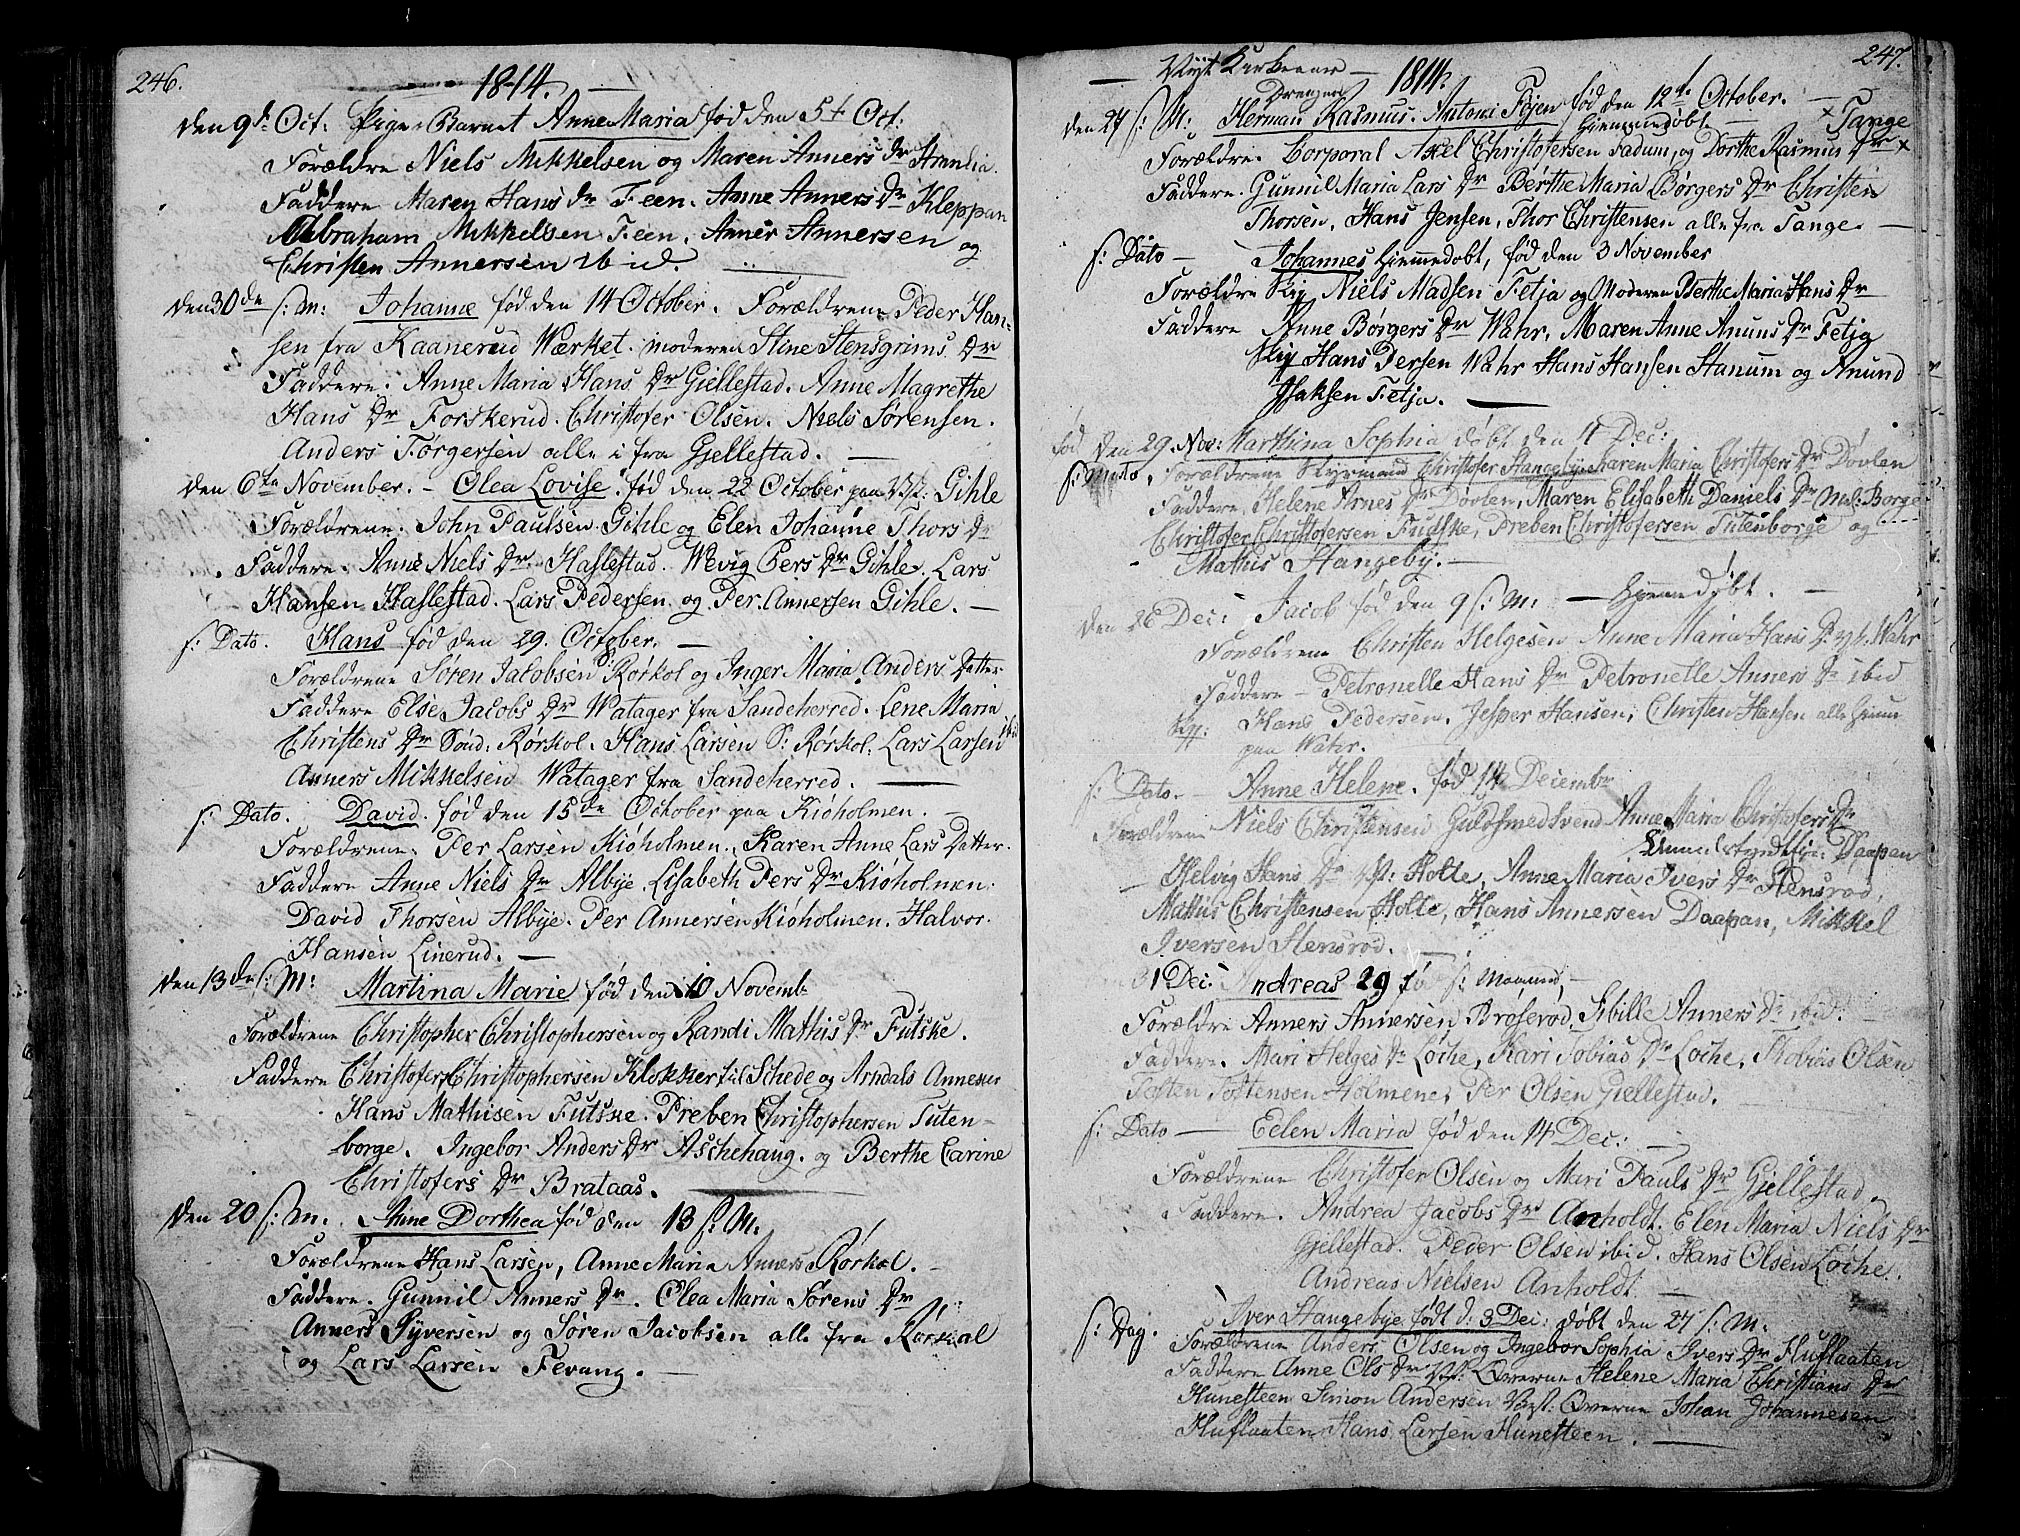 246.
1814.
den 9de Oct. Pige-Barnet Anne Maria fød den 5t Oct.
Forældre Niels Mikkelsen og Maren Anners Dr
Faddere Maren Hans dr Feen. Anne Anners Dr Kleppan
Abraham Mikkelsen Feen. Anners Annersen og
Christen Annersen ibid.
den 30de s: m: Johanne fød den 14 October. Forældrene Peder Han-
sen fra Kaanerud Wærket. moderen Stine Stensgrims Dr
Faddere. Anne Maria Hans Dr Giellestad. Anne Magrethe
Hans Dr Forskerud. Christofer Olsen. Niels Sørensen.
Anders Jørgersen alle i fra Gjellestad.
den 6te November. Olea Lovise. fød den 22 October paa Gihle
Forældrene. John Paulsen Gihle og Elen Johanne Thors Dr
Faddere. Anne Niels Dr. Haslestad. Wevig Pers Dr Gihle. Lars
Hansen Haslestad. Lars Pedersen og Per Annersen Gihle.
s: Dato. Hans fød den 29. October.
Forældrene Søren Jacobsen S: Rørkol og Inger Maria Anders Datter
Faddere Else Jacobs Dr Watager fra Sandeherred. Lene Maria
Christens Dr Sønd: Rørkol. Hans Larsen S: Rørkol. Lars Larsen ibid
Anners Mikkelsen Watager fra Sandeherred.
s: Dato. David. fød den 15de October paa Kiøholmen.
Forældrene. Per Larsen Kiøholmen. Karen Anne Lars Datter.
Faddere Anne Niels Dr Albye. Lisabeth Pers Dr Kiøholmen.
David Thorsen Albye. Per Annersen Kiøholmen. Halvor
Hansen Linerud.
den 13de s: M: Martina Marie fød den 10 Novemb
Forældrene Christopher Christophersen og Randi Mathis Dr Futske.
Faddere Christofer Christophersen Klokker til Schede og Arndals Annexer
Hans Mathisen Futske. Preben Christophersen Tuten-
borge. Ingebor Anders Dr Aschehaug. og Berthe Carine
Christofers Dr Brataas.
den 20 s: m. Anne Dorthea fød den 13 s: M.
Forældrene Hans Larsen, Anne Maria Anners Rørkol.
Faddere. Gunnil Anners Dr. Olea Maria Sørens Dr
Anners Syversen og Søren Jacobsen alle fra Rørkol
og Lars Larsen Fevang.
247.
Nyt Kirkeaar 1814.
den 27 s: M: Drengen Herman Rasmus. Antoni Føyen fød den 12te October.
Hiemmedøbt × Tange
Forældre. Corporal Axel Christofersen Fadum, og Dorthe Rasmus Dr ×
Faddere. Gunnil Maria Lars Dr Berthe Maria Børgers Dr Christen
Thorsen, Hans Jensen, Thor Christensen alle fra Tange.
s: Dato Johannes Hiemmedøbt, fød den 3 November
Forældre Niels Madsen Fetja og Moderen Berthe Maria Hans Dr
Faddere Anne Børgers Dr Wahr, Maren Anne Anuns Dr Fetja
Hans Persen Wahr Hans Hansen Stanum og Anund
Isaksen Fetja.
fød den 29. Nov: Marthina Sophia døbt den 11 Dec:
Forældrene Styrmand Christofer Stangebye Karen Maria Christofers Dr Døvlen
Faddere, Helene Arnes Dr Døvlen, Maren Elisabeth Daniels Dr Ned: Borge
Christofer Christofersen Futske, Preben Christofersen Tutenborge og
Mathis Stangeby.
den 26 Dec: Jacob fød den 9 s: M: Hjemmedøbt.
Forældrene Christen Helgesen Anne Maria Hans Dr Wahr
Faddere Petronelle Hans Dr Petronelle Anners Dr ibid
Hans Pedersen. Jesper Hansen, Christen Hansen alle
paa Wahr.
s: Dato. Anne Helene. fød 14 Decembr
Forældrene Niels Christensen Guldsmedsvend Anne Maria Christofers Dr
Daapan
Helvig Hans Dr Holte, Anne Maria Ivers Dr Stensrød,
Mathis Christensen Holte, Hans Annersen Daapan, Mikkel
Iversen Stensrød.
31 Dec: Andreas 29 s: Maaned,
Forældre Anners Annersen Brøserød, Sibille Anners Dr ibid.
Faddere. Mari Helges Dr Løche, Kari Tobias Dr Løche, Thobias Olsen
Tosten Tostensen Holmene, Per Olsen Gjellestad.
s: Dato Eelen Maria fød den 14 Dec:
Forældrene Christofer Olsen og Mari Pauls Dr Gjellestad
Faddere. Andrea Jacobs Dr Anholdt. Elen Maria Niels Dr
Gjellestad. Peder Olsen ibid. Hans Olsen Løche.
Andreas Nielsen Anholdt.
s: Dag. Iver Stangebye født d: 3 Dec: døbt den 27 s: M:
Forældrene Anders Olsen og Ingebor Sophia Ivers Dr Huflaaten
Faddere Anne Ols Dr Øverne Helene Maria Christians Dr
Hunesteen Simon Andersen Vest: Øverne Johan Johannesen
Huflaaten Hans Larsen Hunesteen.